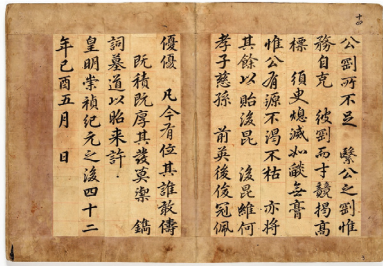 十四
公劉所不足 繄公之劉惟
務自克 彼劉而寸競揭高
標 須臾熄滅如燄無膏
惟公有源不渴不枯 亦將
其餘以貽後昆 後昆維何
孝子慈孫 前英後俊冠佩
優優 凡今有位其誰敢儔
既積既厚其發莫禦 鐫
詞墓道以昭来許
皇明崇禎紀元之後四十二
年己酉五月 日